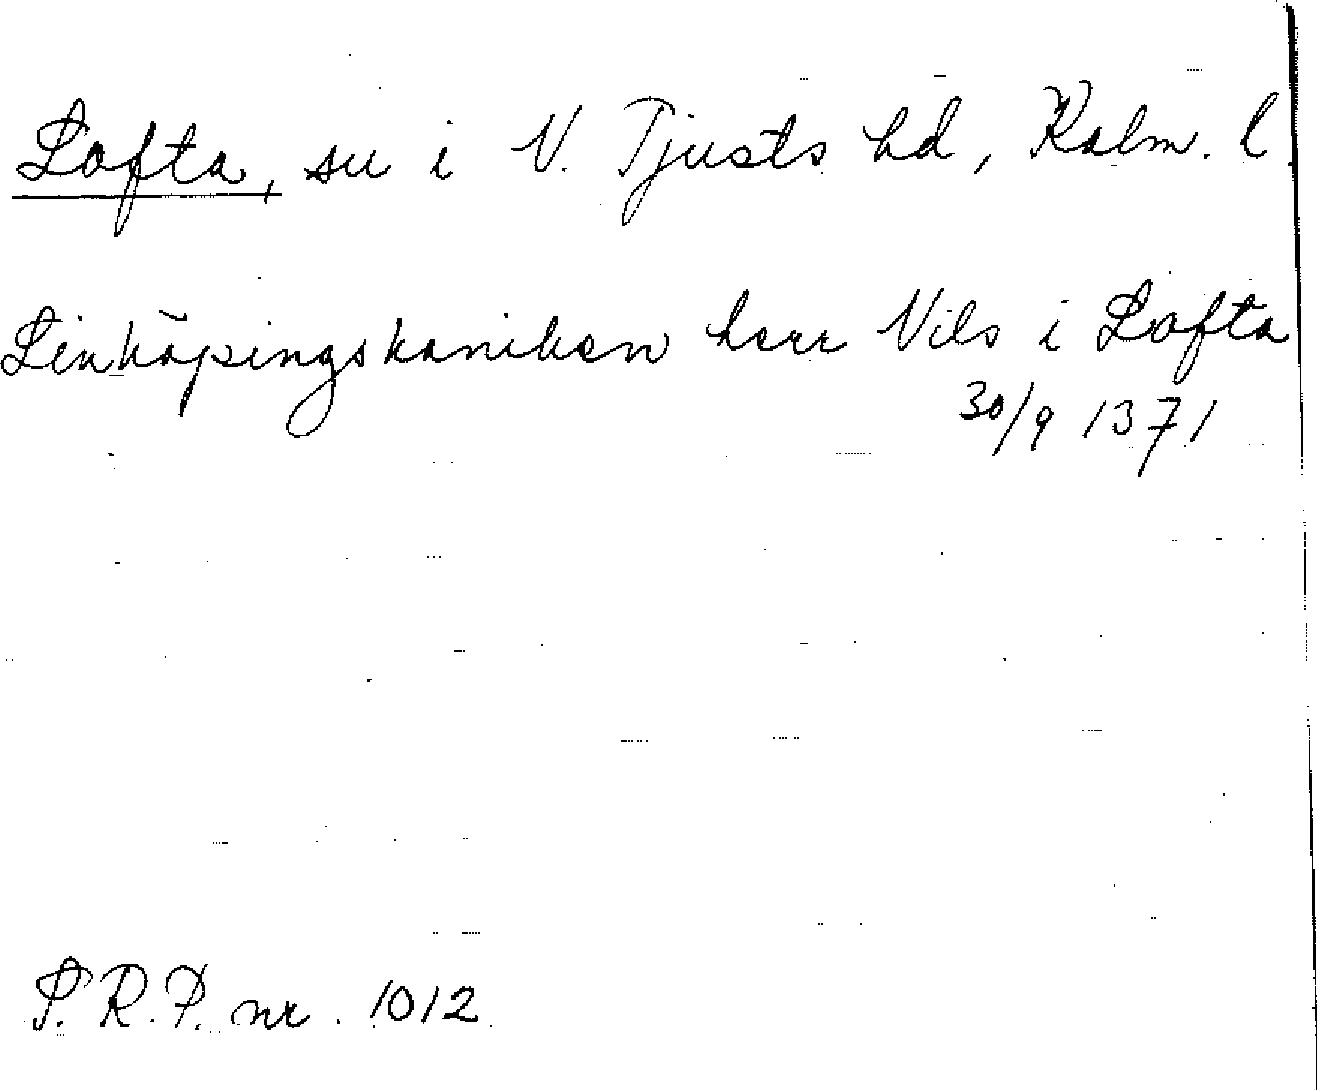 Lofta, sn i N. Tjusts hd, Kalm. l.
Linköpingskaniken herr Nils i Lofta
30/9 1371
S. R. P. nr. 1012.